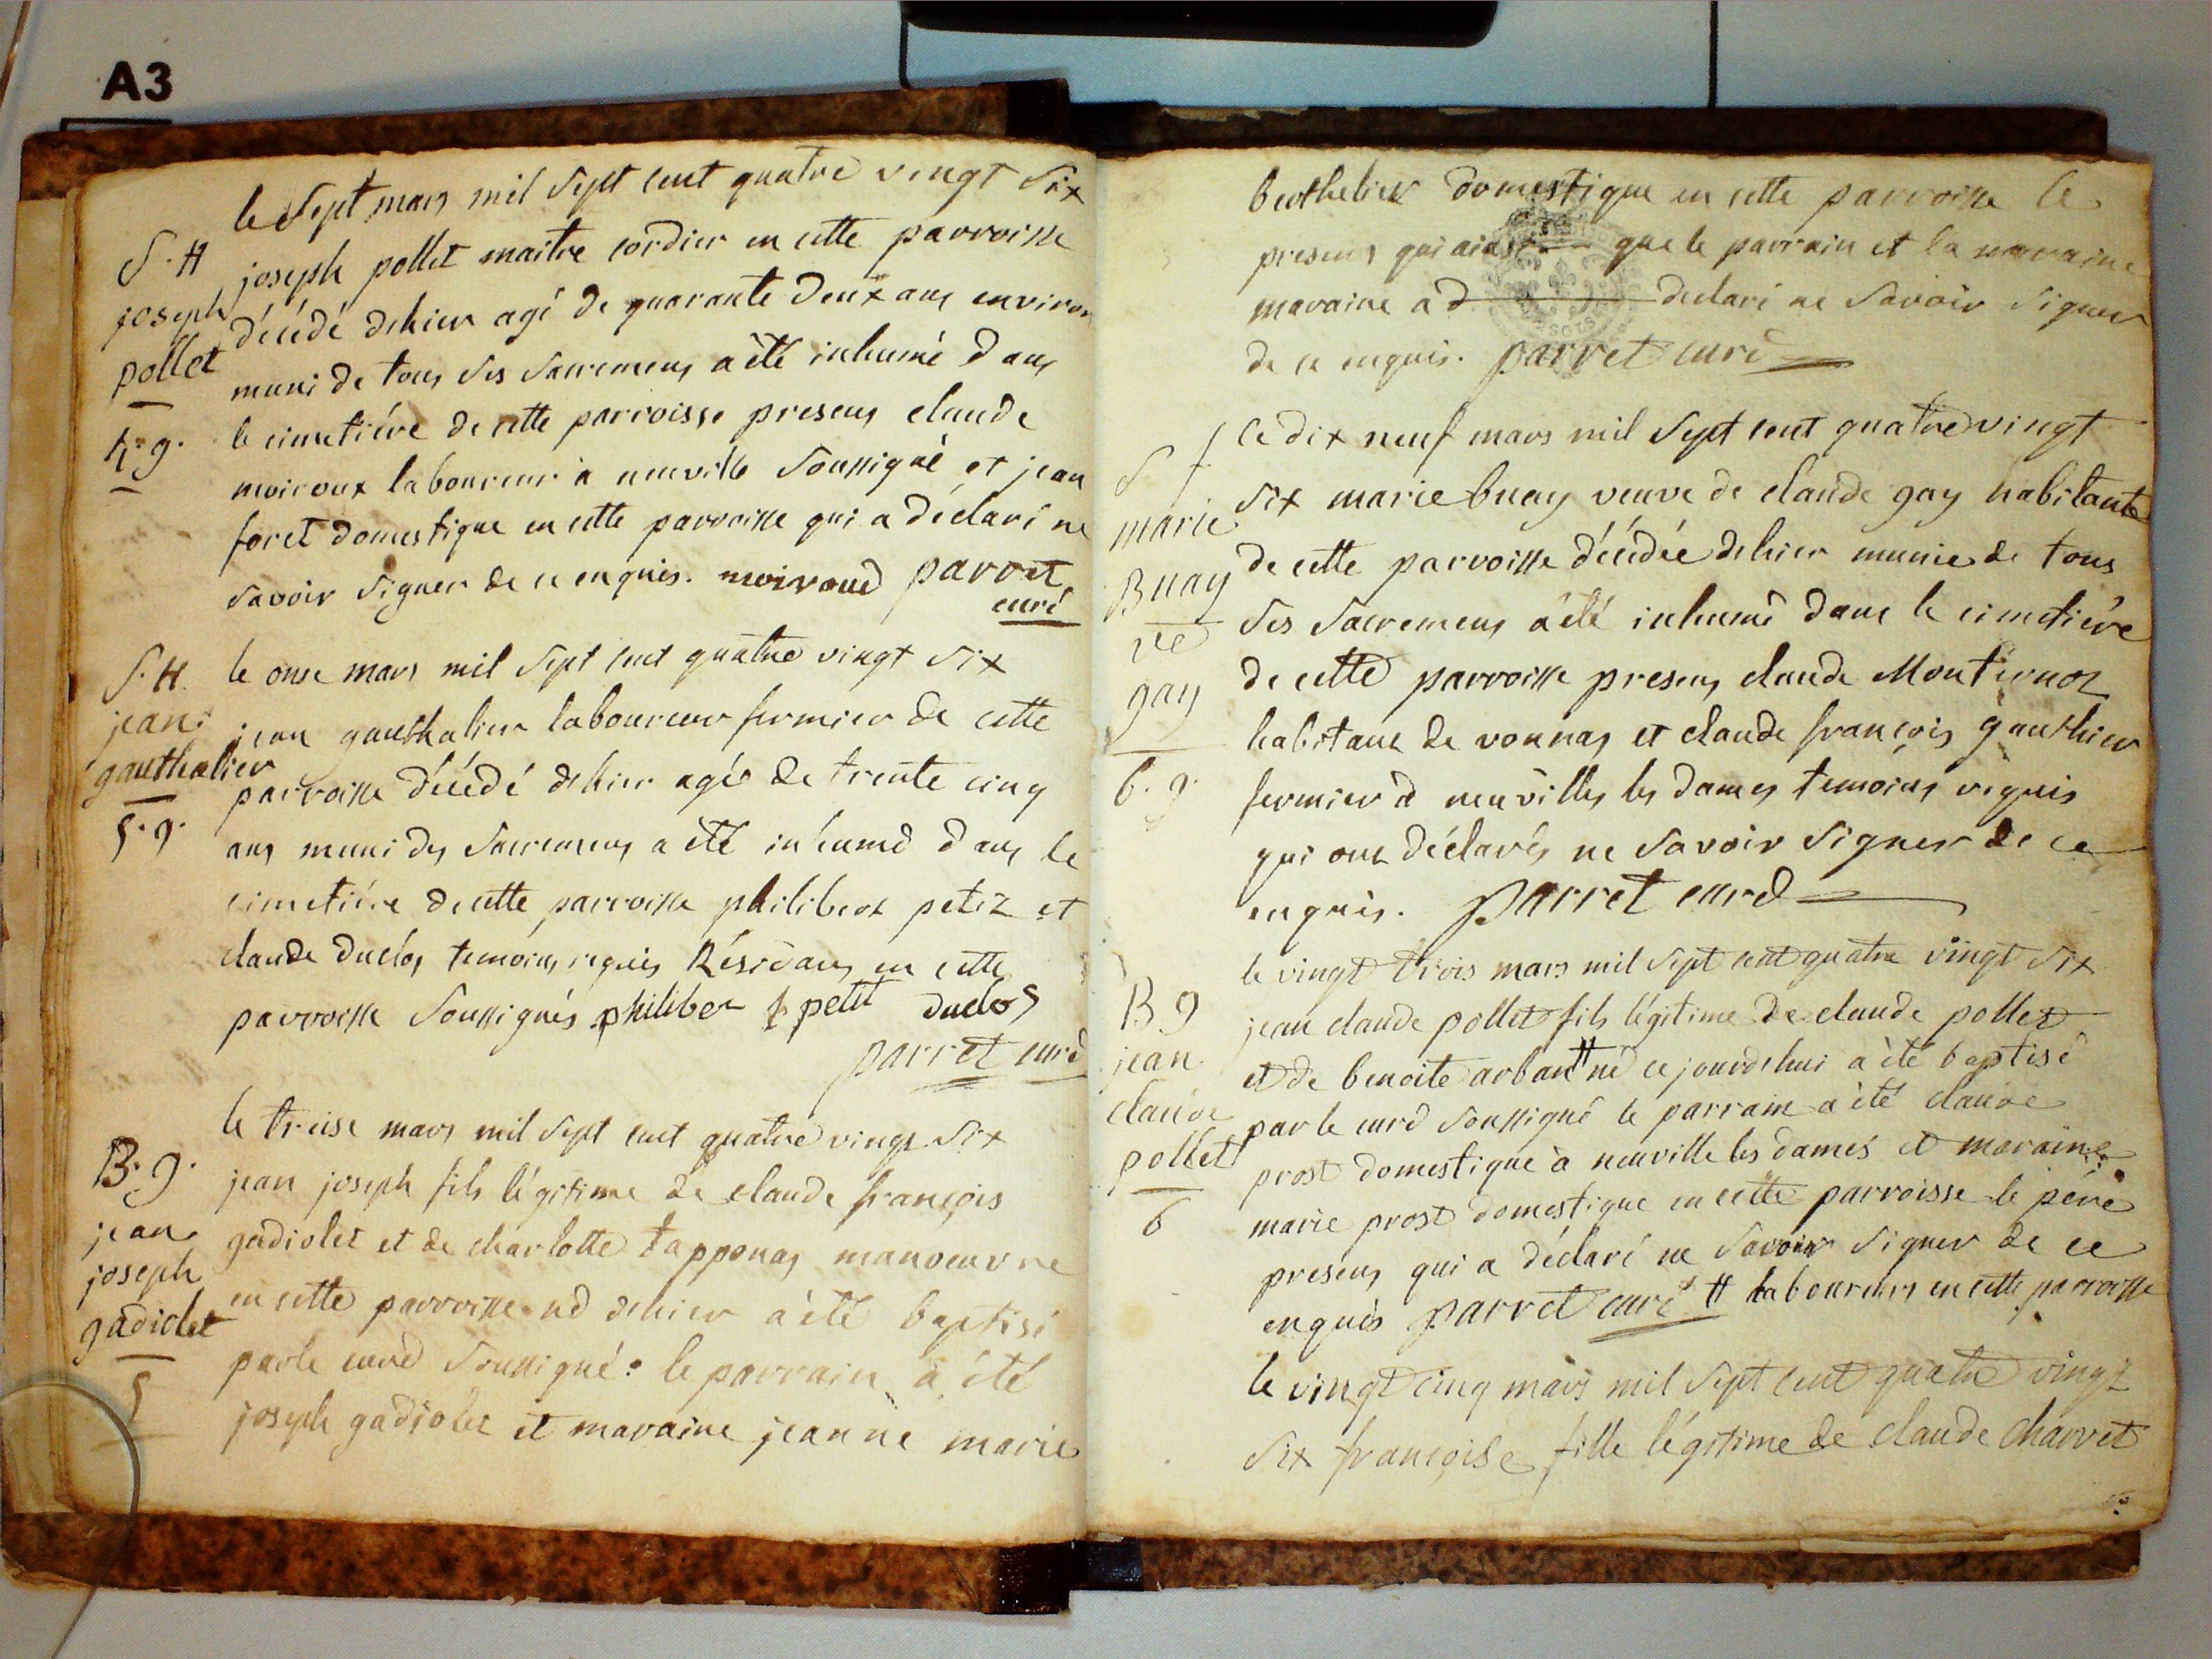 A3
le sept mars mil sept cent quatre vingt six
S. H joseph pollet maitre cordier en cette parroisse
joseph décédé dehier agé de quarante deux ans environ
pollet muni de tous ses sacremens a été inhumé dans
4. g. le cimetiére de cette parroisse presens claude
moiroux laboureur a neuville soussigné et jean
foret domestique en cette parroisse qui a déclaré ne
savoir signer de ce enquis. moiroud parret
curé
S. H. le onse mars mil sept cent quatre vingt six
jean jean gauthalier laboureur fermier de cette
gauthalier parroisse décédé dehier agé de trente cinq
5. g. ans muni des sacremens a été inhumé dans le
cimetiére de cette parroisse philibert petit et
claude duclos temoins requis Résidans en cette
parroisse soussignés philiber petit duclos
parret curé
le treise mars mil sept cent quatre vingt six
B. g. jean joseph fils légitime de claude françois
jean gadiolet et de charlotte tapponas manoeuvre
joseph en cette parroisse né dehier à été baptisé
gadiolet par le curé soussigné: le parrain à été
5 joseph gadiolet et maraine jeanne marie
berthelier domestique en cette parroisse le
presens qui ainsi que le parrain et la maraine
maraine a d declaré ne savoir signer
de ce enquis. parret curé
S f le dix neuf mars mil sept cent quatre vingt
marie six marie buay veuve de claude gay habitante
Buay de cette parroisse décédée dehier munie de tous
ve ses sacremens a été inhumé dans le cimetiére
gay de cette parroisse presens claude Monternoz
habitant de vonnas et claude françois gauthier
6. g. fermier à neuvilles les dames temoins réquis
qui ont déclarés ne savoir signer de ce
enquis. parret curé
le vingt trois mars mil sept cent quatre vingt six
B g jean claude pollet fils légitime de claude pollet
jean et de benoite arban # né ce jourdehui a été baptisé
claude par le curé soussigné le parrain a été claude
pollet prost domestique à neuville les dames et maraine
6 marie prost domestique en cette parroisse le pére
presens qui a déclaré ne savoir signer de ce
enquis parret curé # laboureurs en cette parroisse
le vingt cinq mars mil sept cent quatre vingt
six françoise fille légitime de claude charvet